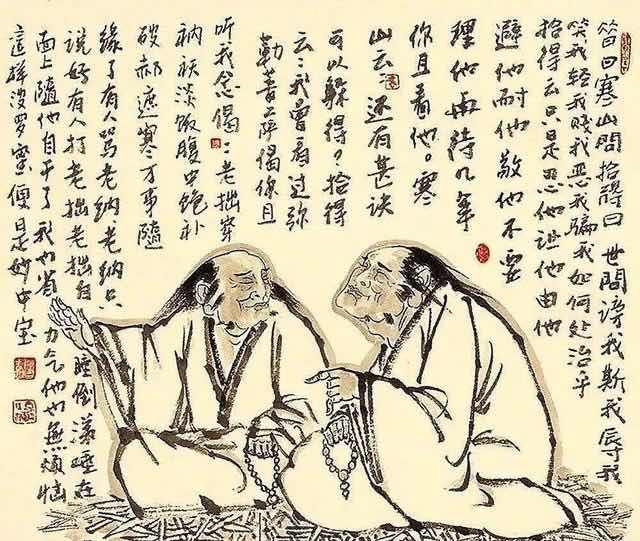 昔日寒山問拾得曰世間謗我欺我辱我
笑我轻我賤我惡我騙我如何处治乎
拾得云只是忍他让他由他
避他耐他敬他不要
理他再待几年
你且看他。寒
山云:还有甚诀
可以躲得?拾得
云:我曾看过弥
勒菩萨偈你且
听我念偈:老拙穿
衲袄淡饭腹中饱补
破遮寒万事随
缘了有人骂老纳老纳只
说好有人打老拙老拙自
睡倒涕唾在
面上随他自干了我也省
力气他也無煩惱
這样波罗蜜便是妙中宝